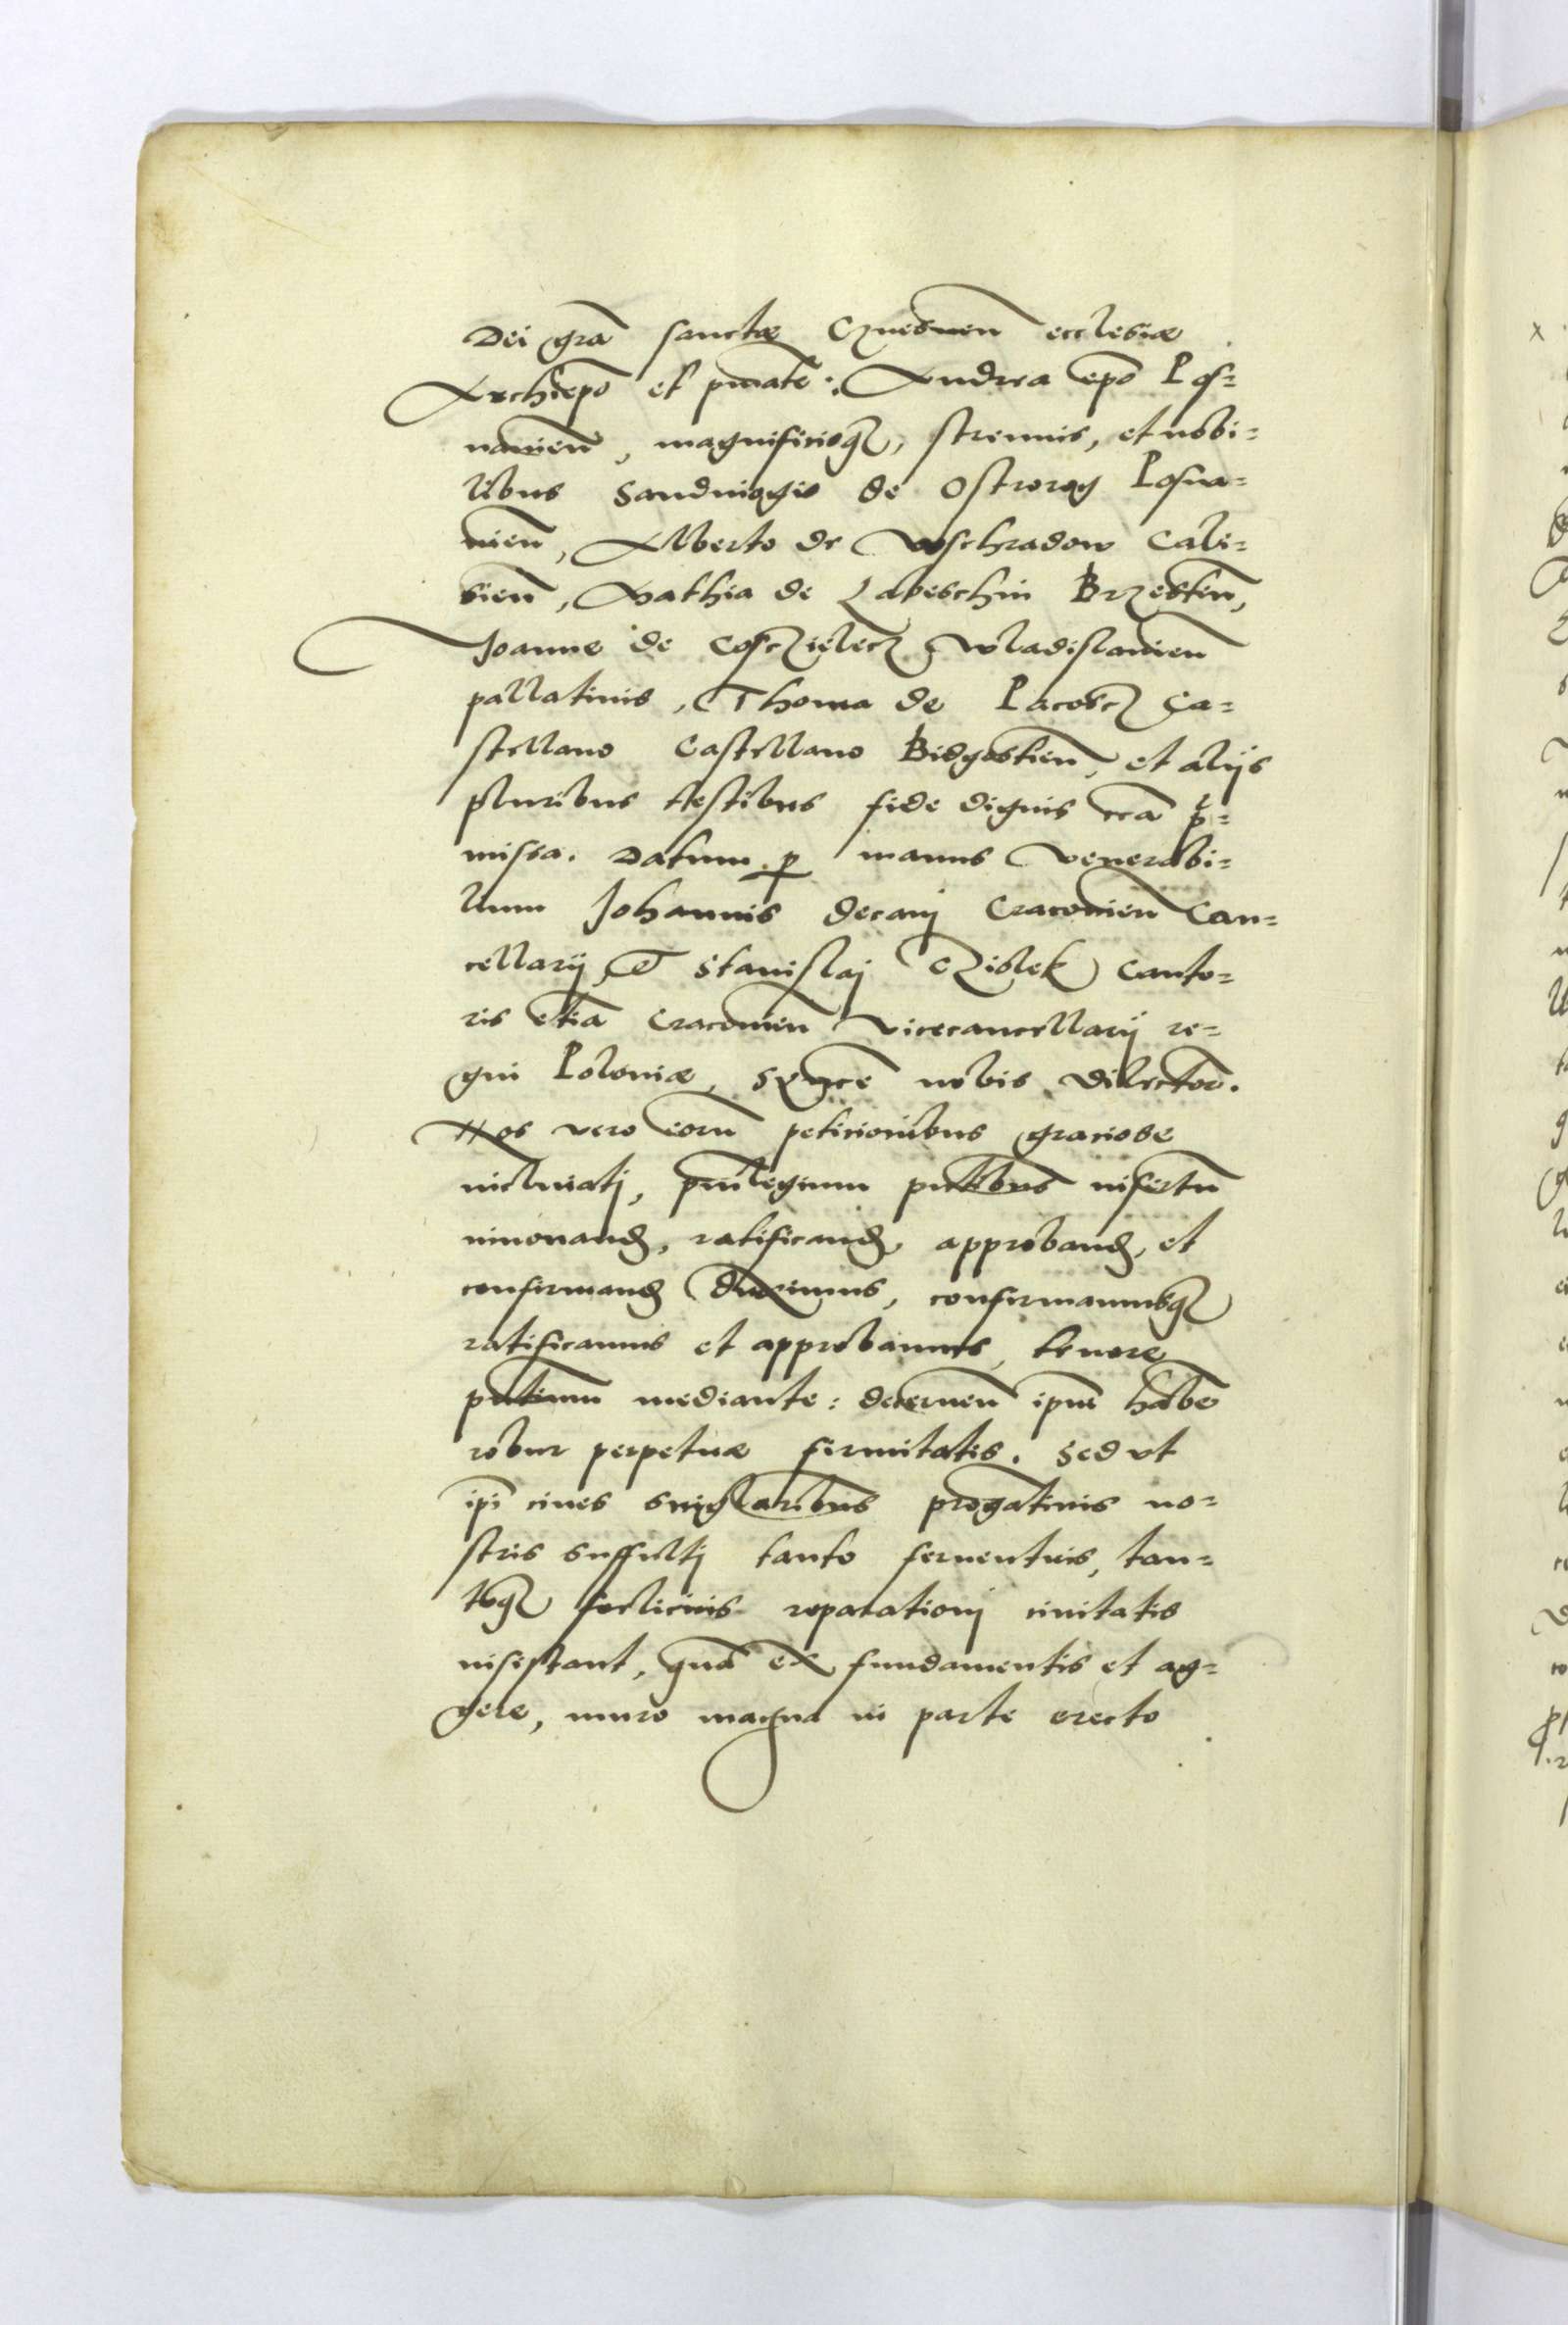 Dei gra sanctæ Gznesnen ecclesiæ
Archiepo et pmate: Andrea epo Pos=
nanien, magnificisq3, strenuis, et nobi=
libus Sandiuogio de Ostrorog Posna=
nien, Alberto de Woschradow Cali=
sien, Mathia de Labeschin Brzesten,
Joanne de Cosczielecz Wladislauien
pallatinis, Thoma de Pacoscz Ca=
stellano Castellano Bidgostien, et alijs
pluribus testibus fide dignis rca p=
missa. Datum p manus Venerabi=
lium Johannis decanj Cracouien Can=
cellarij, et Stanislaj Cziolek Canto=
ris etia Cracouien Vicecancellarij re=
gni Poloniæ, syncere nobis dilector.
Nos vero eoru peticionibus graciose
inclinatj, priuilegium pntibus insertu
innouand, ratificand, approband, et
confirmand duximus, confirmamusq3
ratificamus et approbamus, tenore
pntium mediante: decernen ipm habe
robur perpetuæ firmitatis. Sed ut
ipi ciues singlaribus progatiuis no=
stris suffultj tanto feruentius, tan=
toq3 foelicius reparationj ciuitatis
insistant, qua ex fundamentis et ag=
gere, muro magna in parte erecto